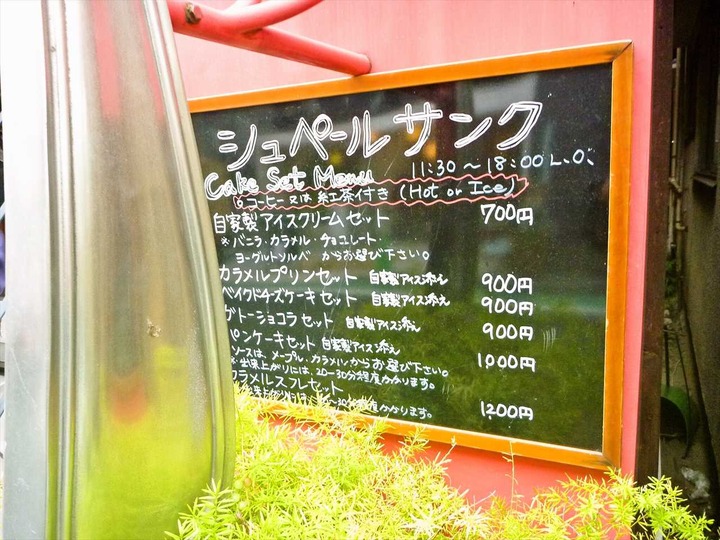 シュペール サンク
11:30〜18:00 L.O.
Cake Set Menu
コーヒー又は紅茶付き (Hot or Ice)
自家製アイスクリームセット 700円
※バニラ・カラメル・チョコレート・
ヨーグルトソルベ からお選び下さい。
カラメルプリンセット 自家製アイス添え 900円
ベイクドチーズケーキセット 自家製アイス添え 900円
ガトーショコラセット 自家製アイス添え 900円
ンケーキセット 自家製アイス添え 1000円
ソースは、メープル、カラメルからお選び下さい。
※出来上がりには、20〜30分程度かかります。
カラメルスフレセット 1200円
30分程度かかります。